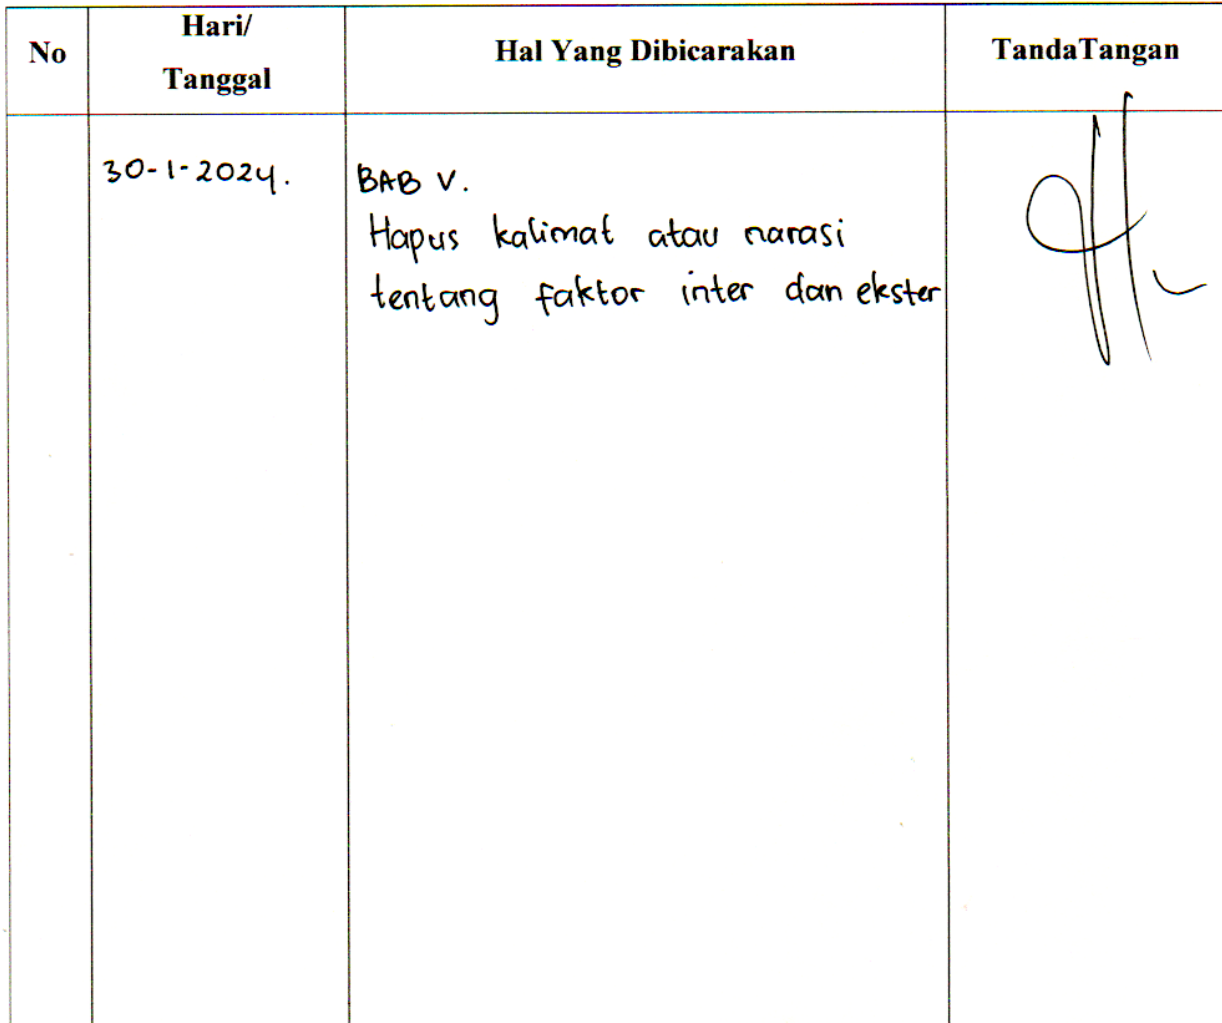 No
Hari/
Tanggal
Hal Yang Dibicarakan
TandaTangan
30-1-2024.
BAB V.
Hapus kalimat atau narasi
tentang faktor inter dan ekster